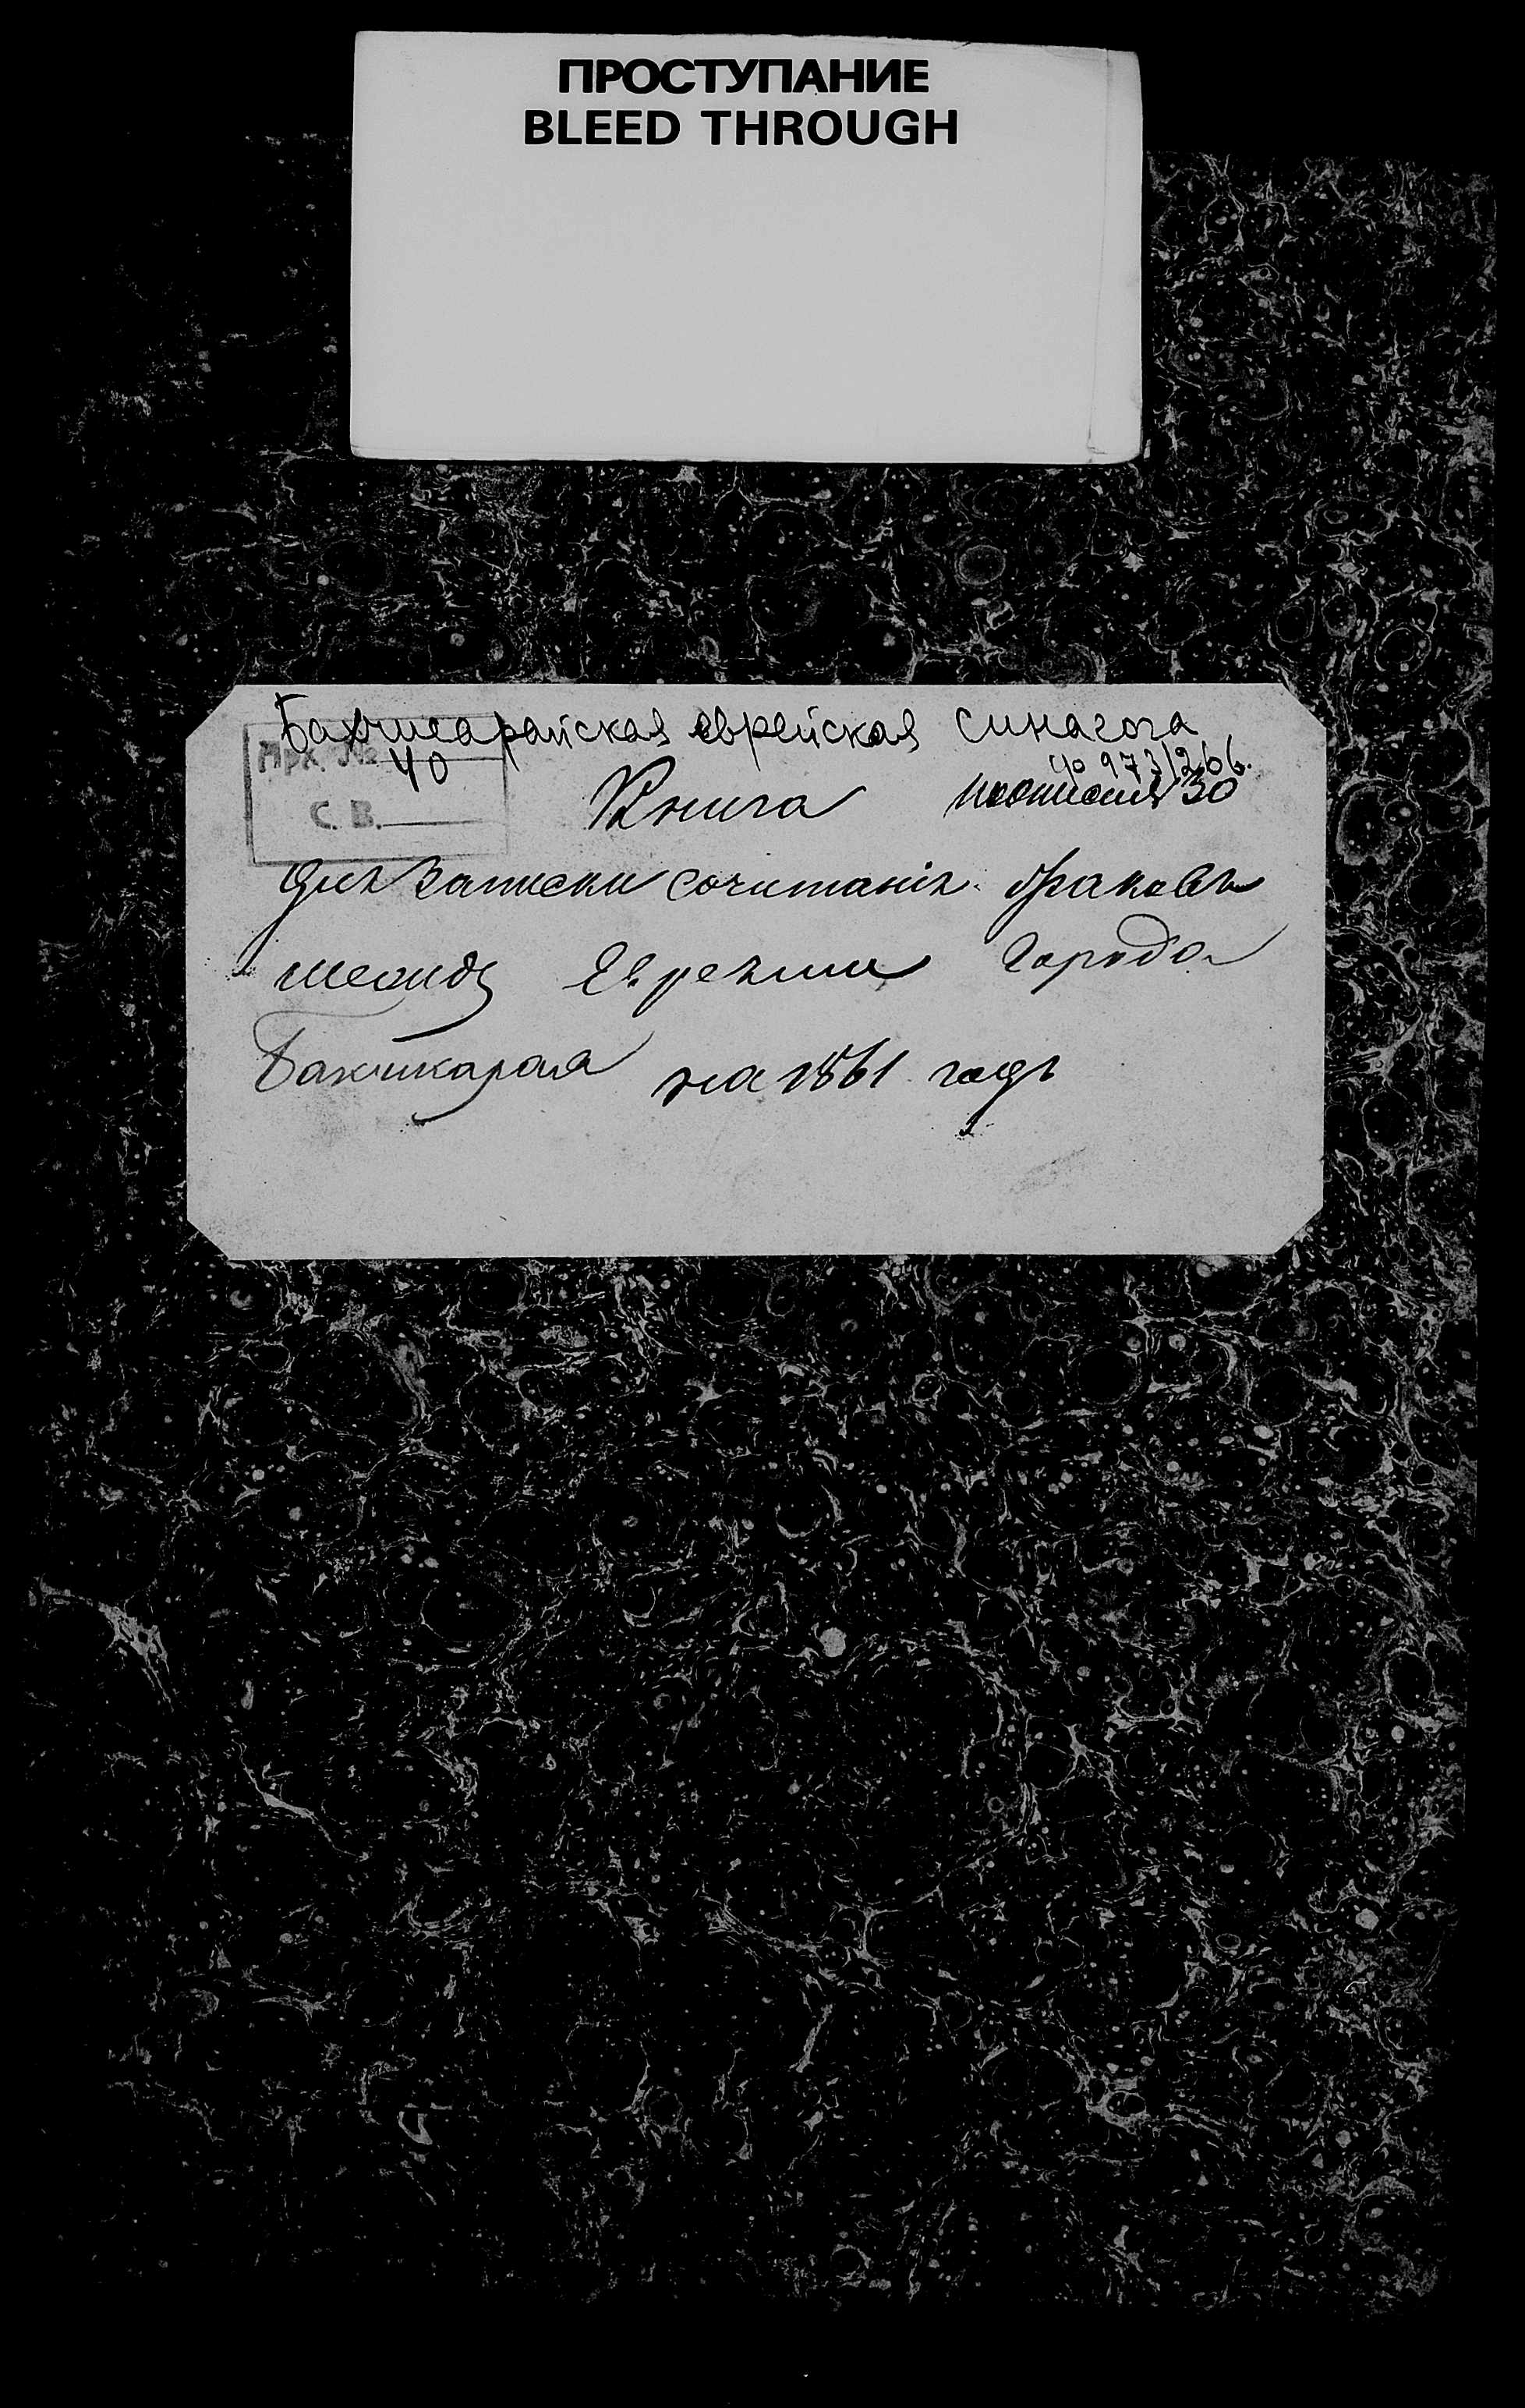 ПРОСТУПАНИЕ
BLEED THROUGH
Бахчисарайская еврейская синагога
Арх. №
40
973/266.
С. В.
Книга 30
для записки сочитанія браковъ
между Евреями Города
Бахчисарая на 1861 годъ